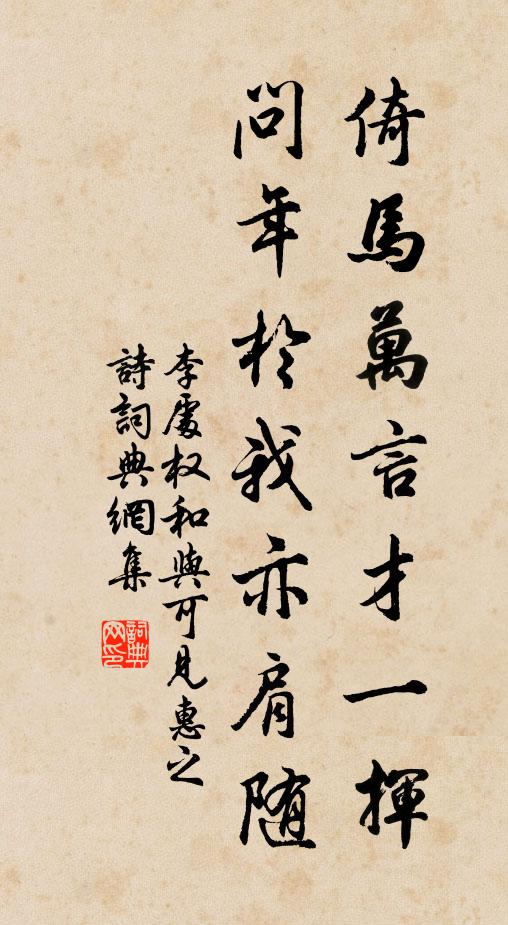 倚馬萬言才一揮
問年於我亦肩随
李處权和與可見惠之
詩詞典網集
詞典
网印